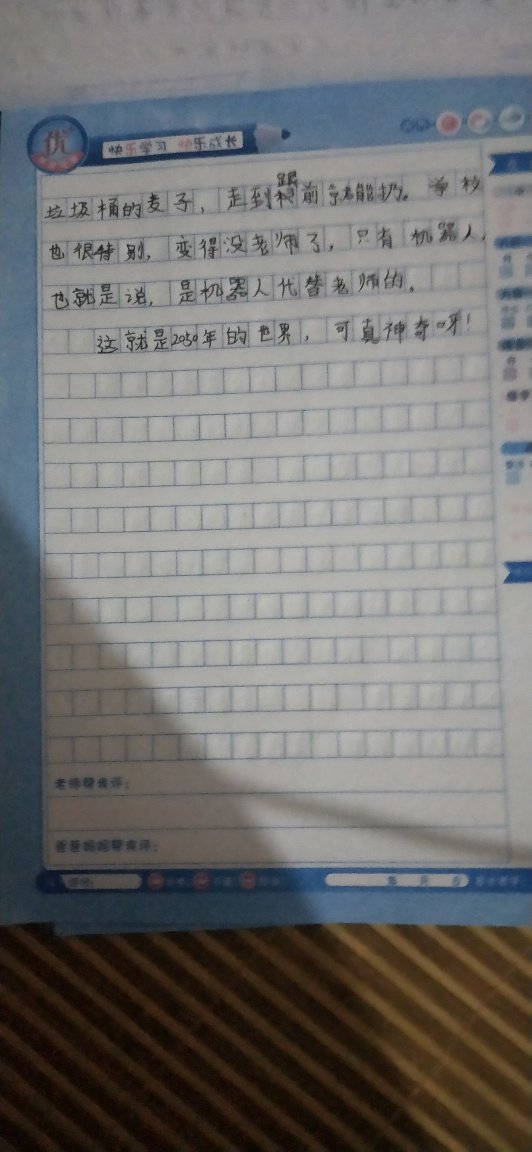 优
快乐学习 快乐成长
垃圾桶的麦子，走到跟前才能扔。学校
也很特别，变得没老师了，只有机器人，
也就是说，是机器人代替老师的。
这就是2050年的世界，可真神奇呀！
老师帮我评：
爸爸妈妈帮我评：
年 月 日